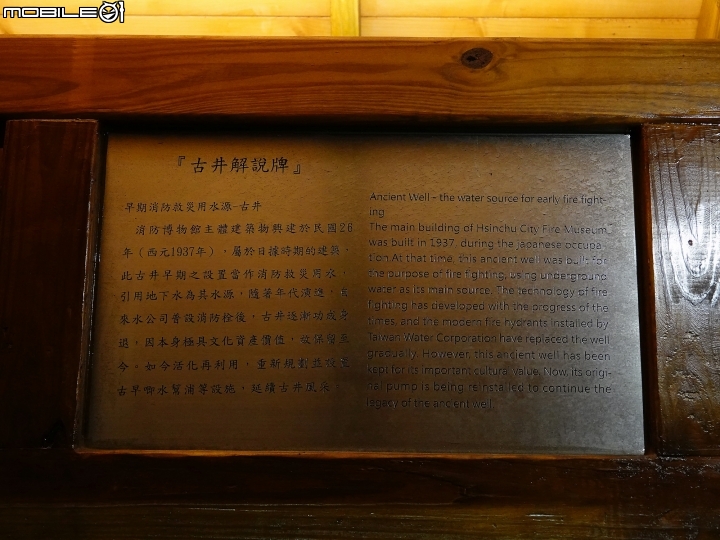 MOBILE01
『古井解說牌』
早期消防救災用水源-古井
消防博物館主體建築物興建於民國26
年（西元1937年），屬於日據時期的建築。
此古井早期之設置當作消防救災用水，
引用地下水為其水源，隨著年代演進，自
來水公司普設消防栓後，古井逐漸功成身
退，因本身極具文化資產價值，故保留至
今。如今活化再利用，重新規劃並設置
古早唧水幫浦等設施，延續古井風采。
Ancient Well - the water source for early fire fight-
ing
The main building of Hsinchu City Fire Museum
was built in 1937, during the Japanese occupa-
tion.At that time, this ancient well was built for
the purpose of fire fighting, using underground
water as its main source. The technology of fire
fighting has developed with the progress of the
times, and the modern fire hydrants installed by
Taiwan Water Corporation have replaced the well
gradually. However, this ancient well has been
kept for its important cultural value. Now, its origi-
nal pump is being reinstalled to continue the
legacy of the ancient well.